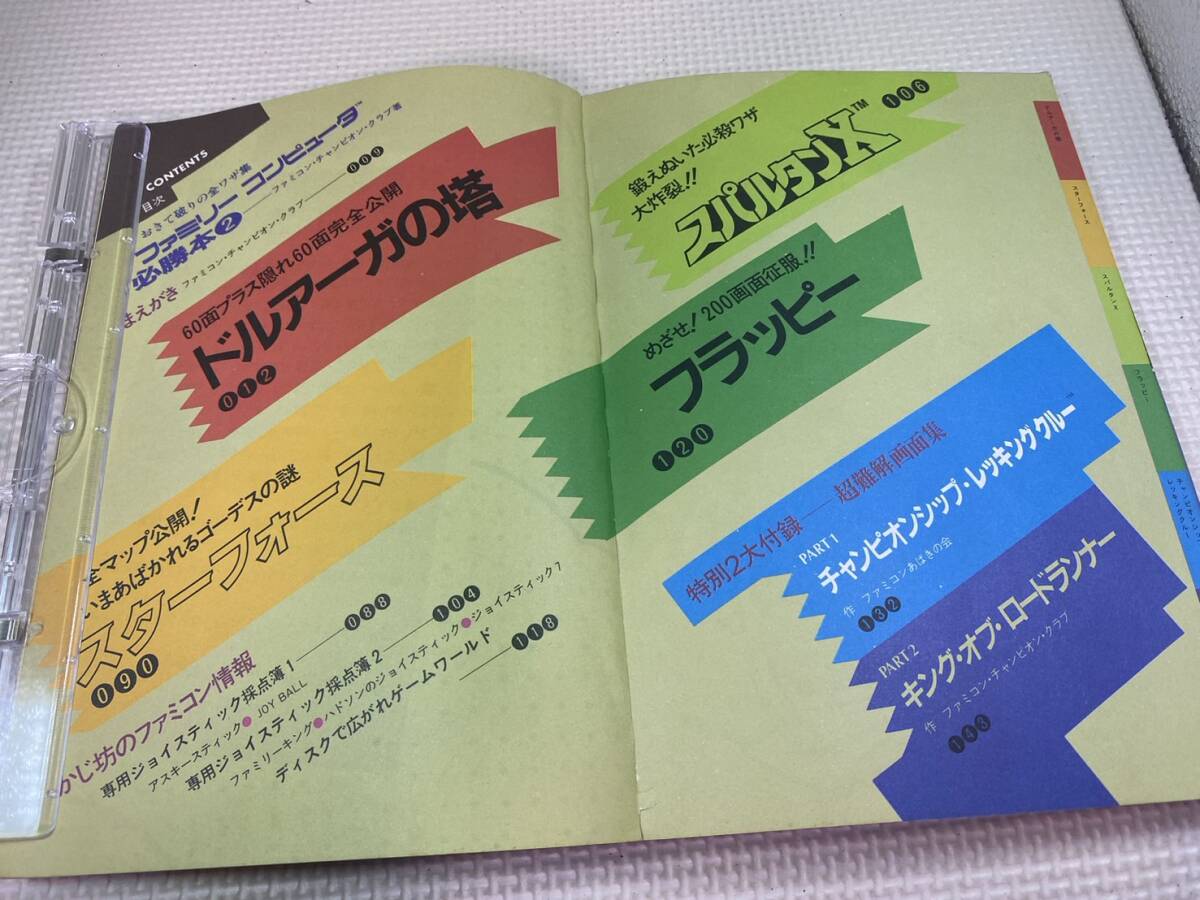 CONTENTS
目次
おきて破りの全ワザ集
ファミリーコンピュータ™
必勝本❷
ファミコン・チャンピオン・クラブ著
まえがき ファミコン・チャンピオン・クラブ 009
60面プラス隠れ60面完全公開
ドルアーガの塔
012
全マップ公開!
いまあばかれるゴーデスの謎
スターフォース
090
かじ坊のファミコン情報
専用ジョイスティック採点簿1 088
アスキースティック●JOY BALL
専用ジョイスティック採点簿2 104
ファミリーキング●ハドソンのジョイスティック●ジョイスティック7
ディスクで広がれゲームワールド 118
鍛えぬいた必殺ワザ
大炸裂!!
スパルタンX™
106
めざせ!200画面征服!!
フラッピー
120
特別2大付録——超難解画面集
PART 1
チャンピオンシップ・レッキングクルー™
作 ファミコンあばきの会
132
PART 2
キング・オブ・ロードランナー
作 ファミコン・チャンピオン・クラブ
143
ドルアーガの塔
スターフォース
スパルタンX
フラッピー
チャンピオンシップ・
レッキングクルー